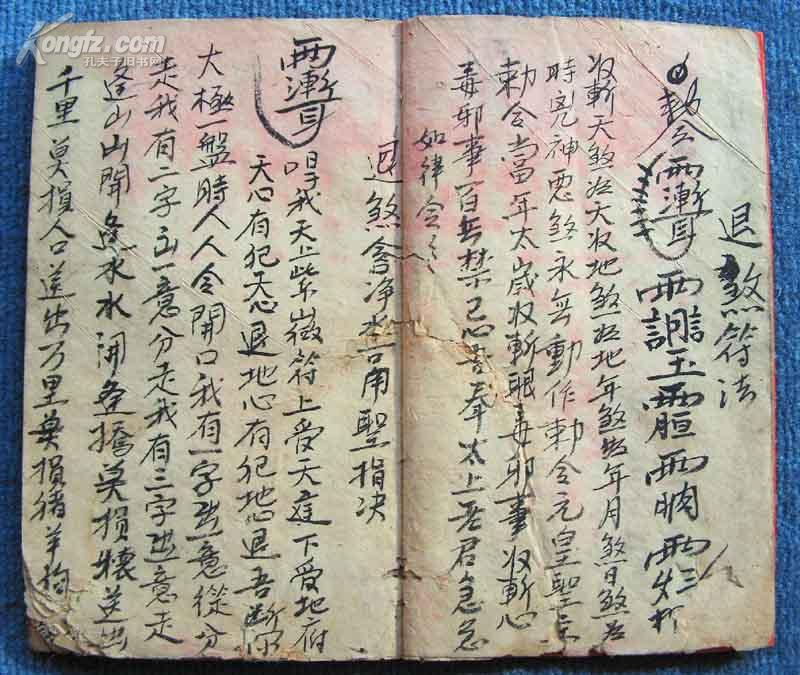 Kongfz.com
孔夫子旧书网
退煞符法
收斩天煞归天收地煞归地年煞归年月煞日煞归
時兇神恶煞永無動作勅令元皇聖主
勅令当年太歲收斬眼毒邪事收斬心
毒邪事百無禁忌吾奉太上老君急急
如律令
退煞含净水一口用聖指决
唱我天上紫微符上受天庭下受地府
天心有犯天心退地心有犯地心退吾斷你
大極一盤時人人令開口我有一字出一意從分
走我有二字出一意分走我有三字出意走
逢山山開逢水水開逢橋莫損壊送出
千里莫損人口送出万里莫損猪羊狗